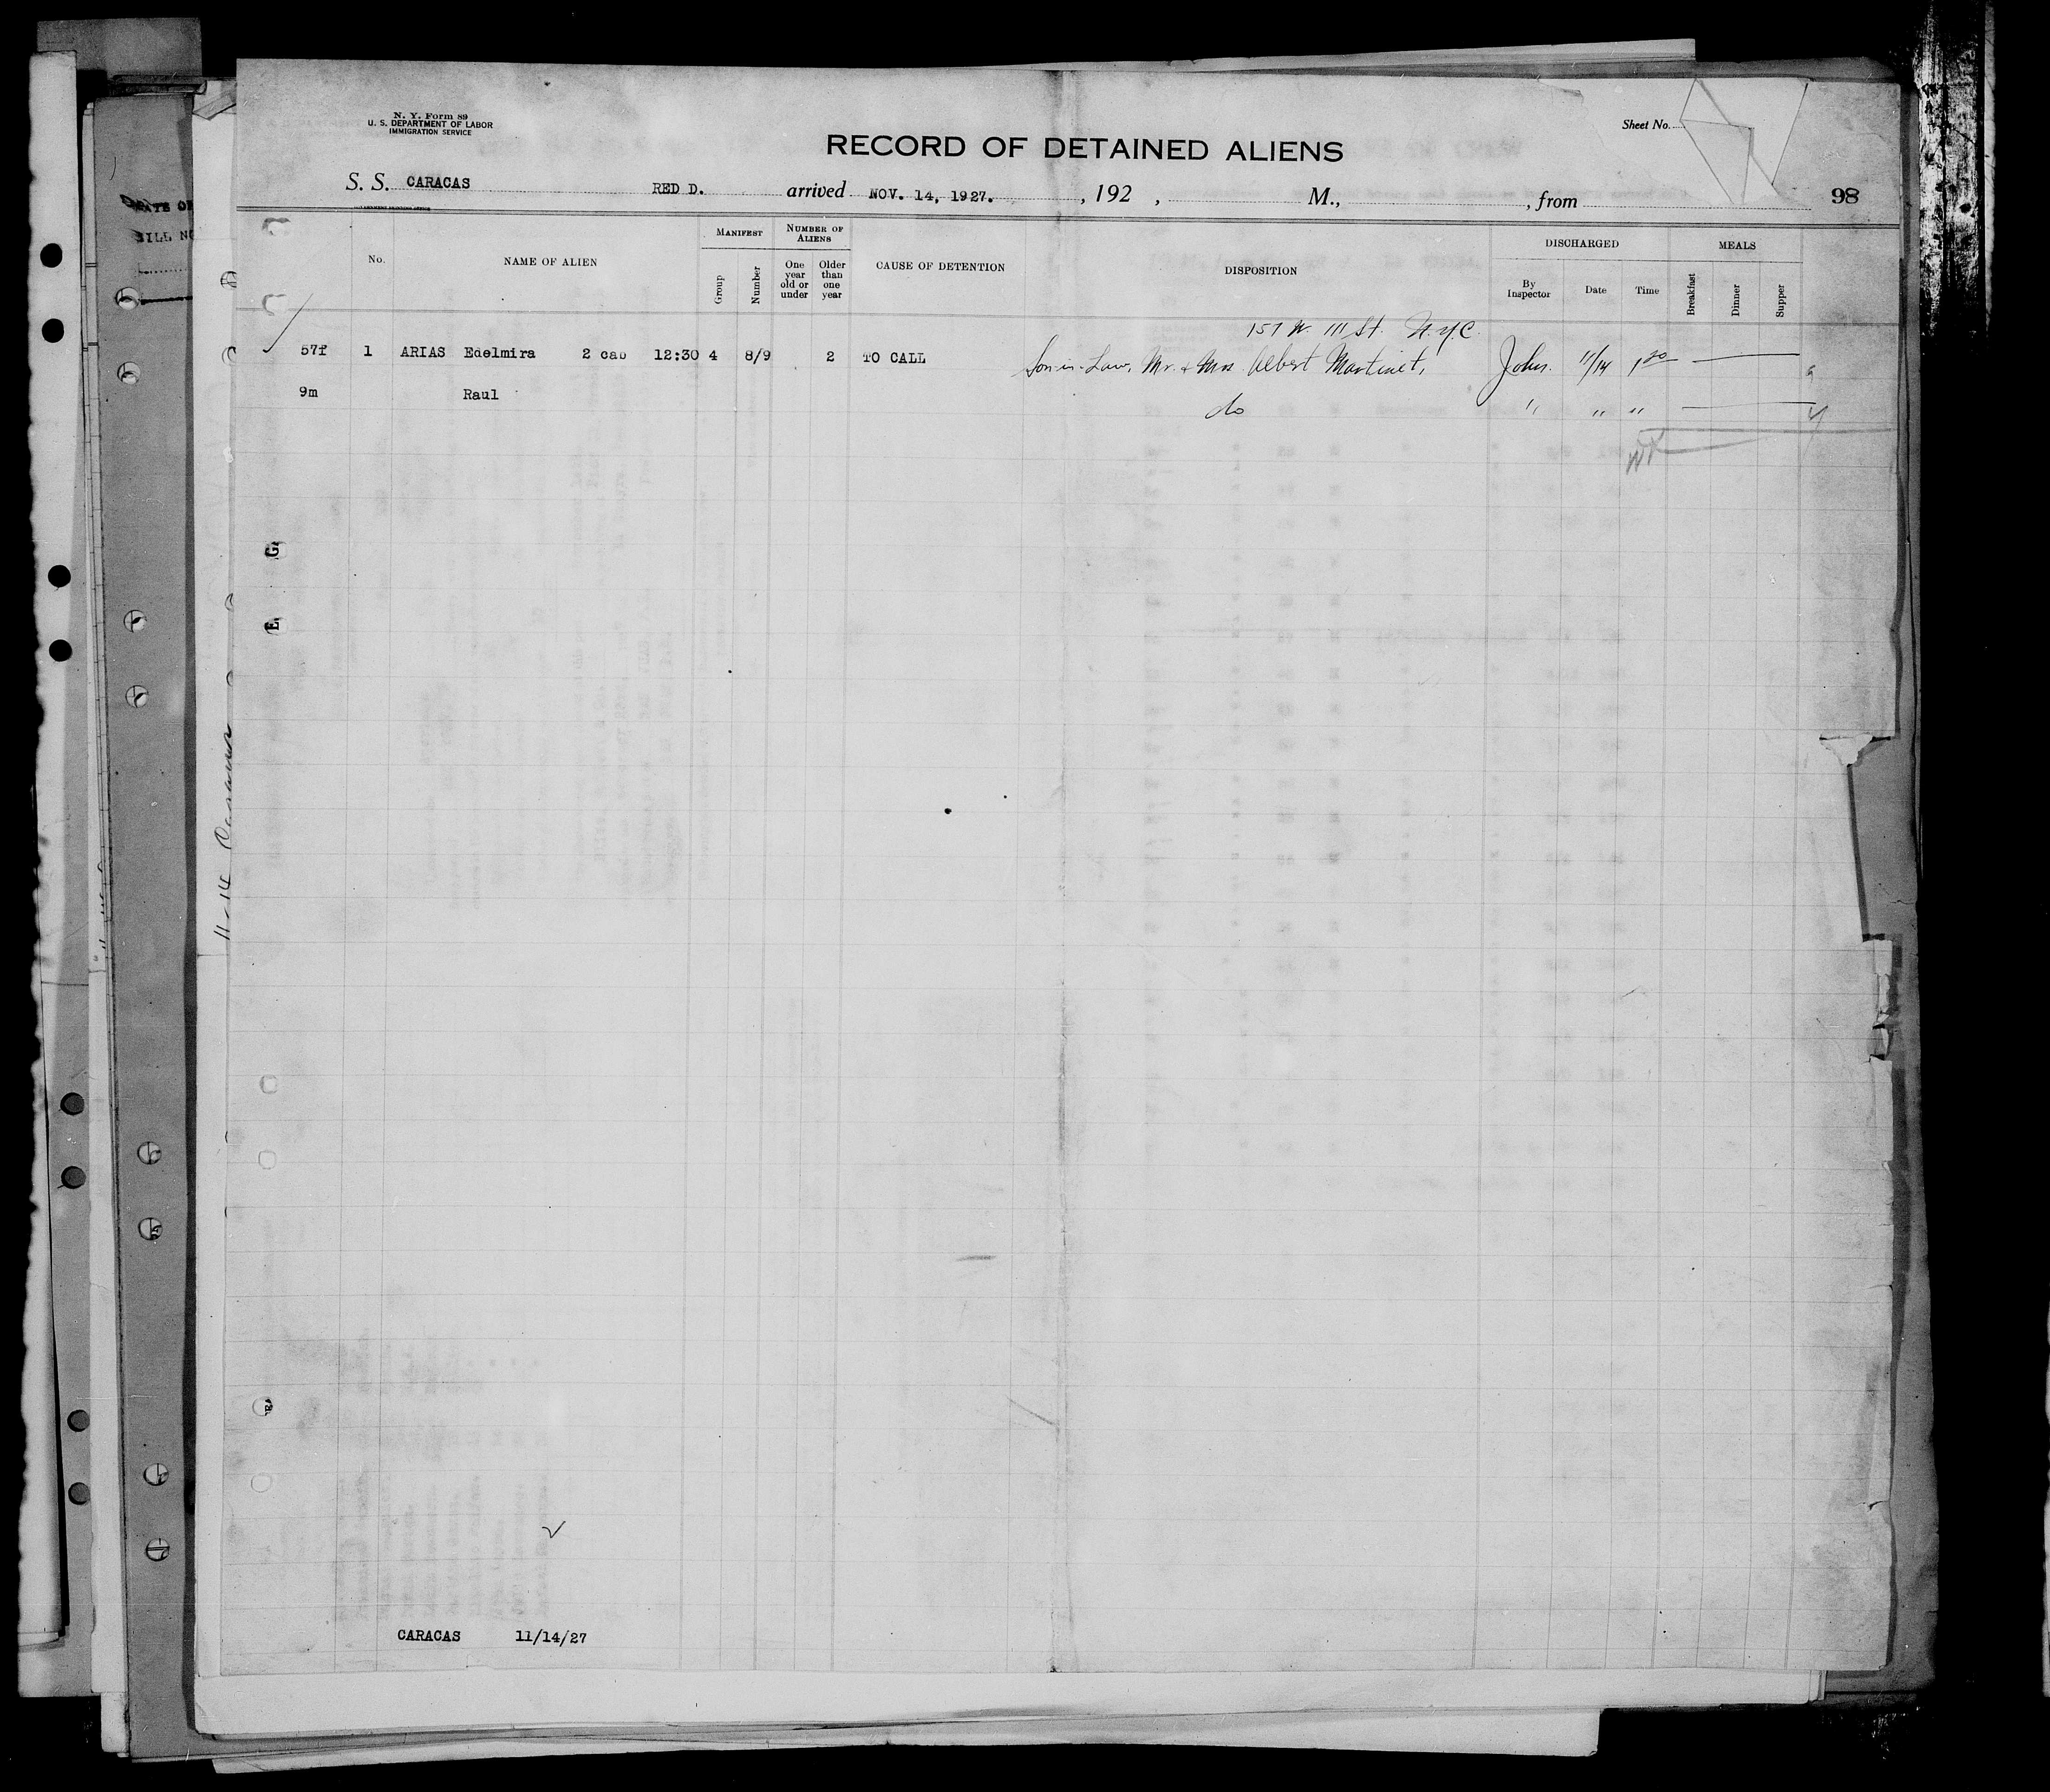 N. Y. Form 89
U. S. DEPARTMENT OF LABOR
IMMIGRATION SERVICE
Sheet No.
RECORD OF DETAINED ALIENS
S. S. CARACAS RED D. arrived NOV. 14, 1927. , 192 , M., , from 98
No. NAME OF ALIEN MANIFEST Group Number NUMBER OF ALIENS One year old or under Older than one year CAUSE OF DETENTION DISPOSITION DISCHARGED By Inspector Date Time MEALS Breakfast Dinner Supper
157 W. 111 St. N.Y.C.
57f 1 ARIAS Edelmira 2 cab 12:30 4 8/9 2 TO CALL Son-in-Law, Mr. & Mrs. Albert Martinet, John. 11/14 1
9m Raul do " " "
11-14 Caracas
CARACAS 11/14/27